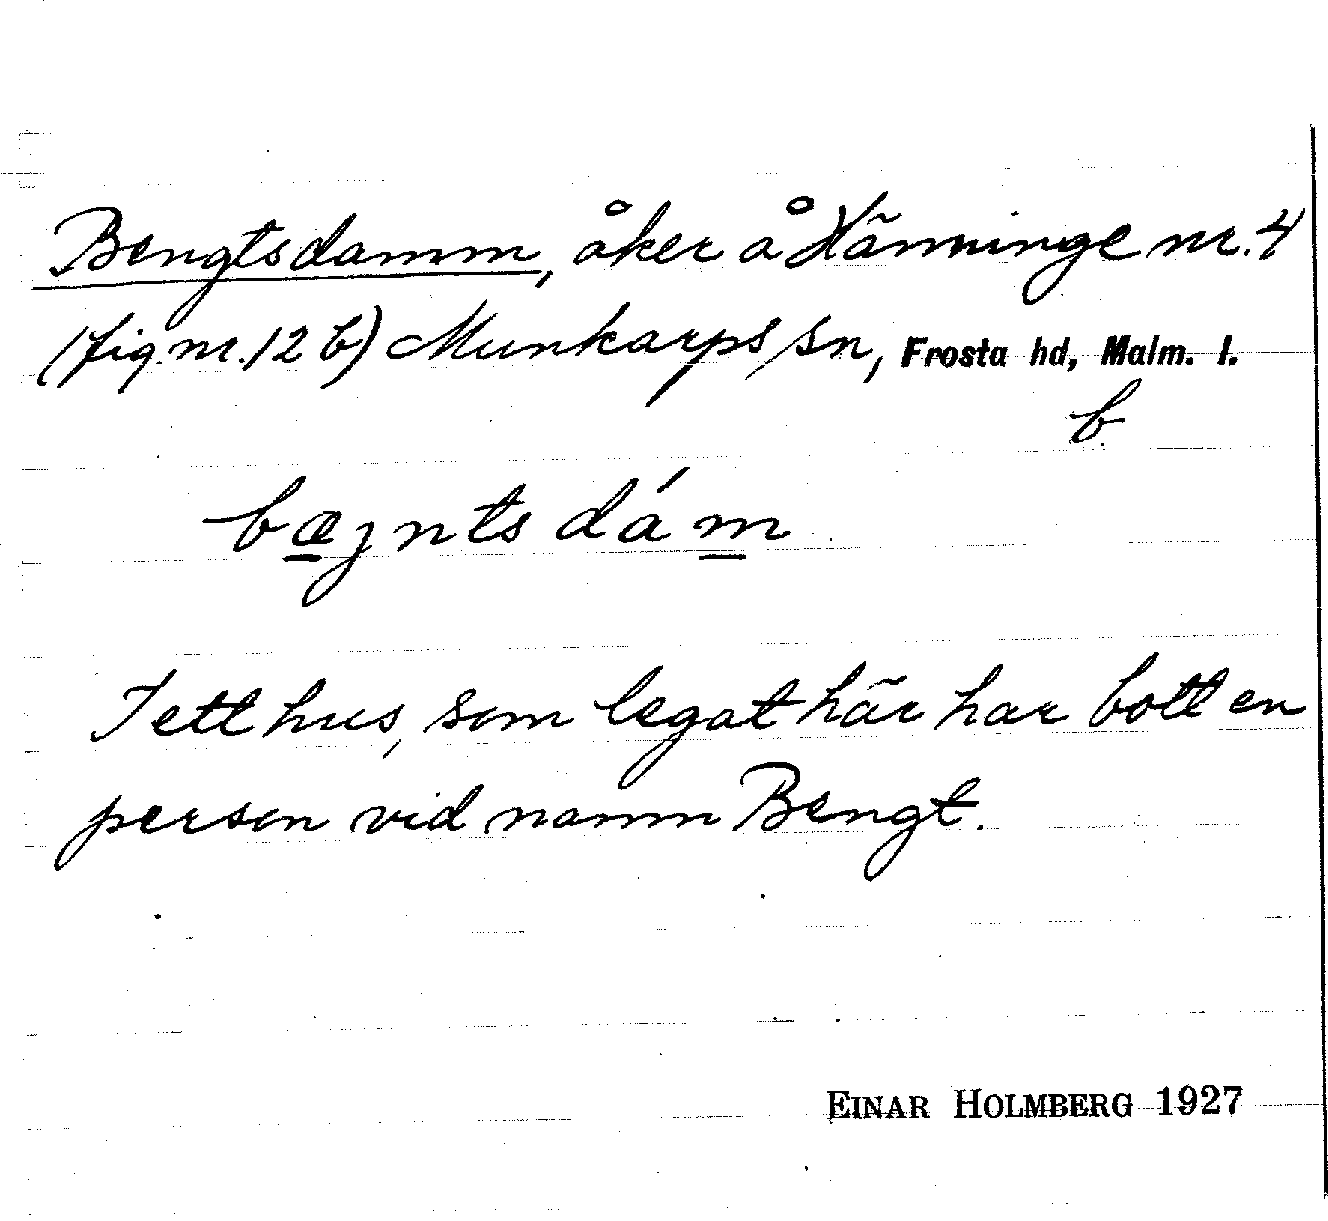 Bengtsdamm, åker å Hänninge nr. 4
(fig nr. 12 b) Munkarps sn, Frosta hd, Malm. l.
b
bæjntsdám
I ett hus, som legat här har bott en
person vid namn Bengt.
EINAR HOLMBERG 1927